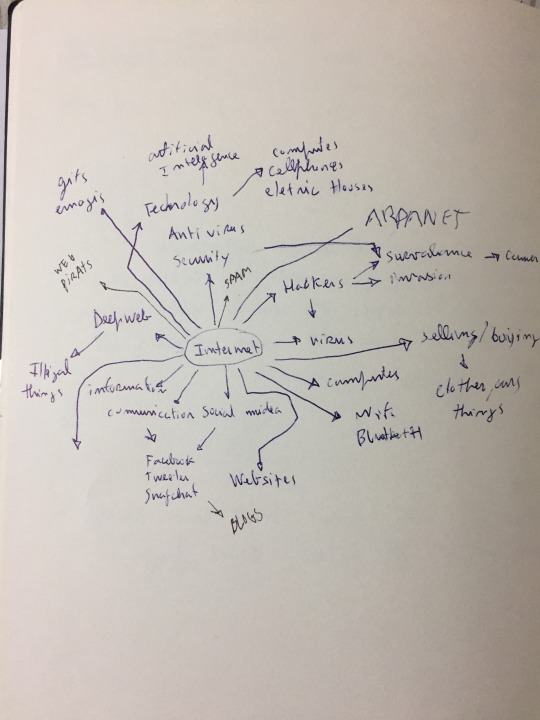 artificial
Intelegence
computes
cellphones
eletric Houses
gifs
emogis
Technology
ARPANET
Anti virus
Security
survalance
invasion
WEB
PIRATS
SPAM
Hackers
Deepweb
Internet
virus
selling/buying
Illigal
things
information
computes
clothes, cars
things
comunication Social midea
wifi
Facebook
Tweeter
Snapchat
Websites
BLOGS